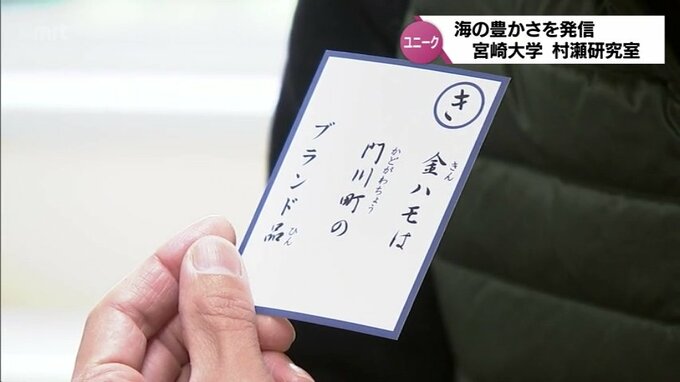 mrt
ユニーク
海の豊かさを発信
宮崎大学 村瀬研究室
き
金ハモは
きん
門川町の
かどがわちょう
ブランド品
ひん